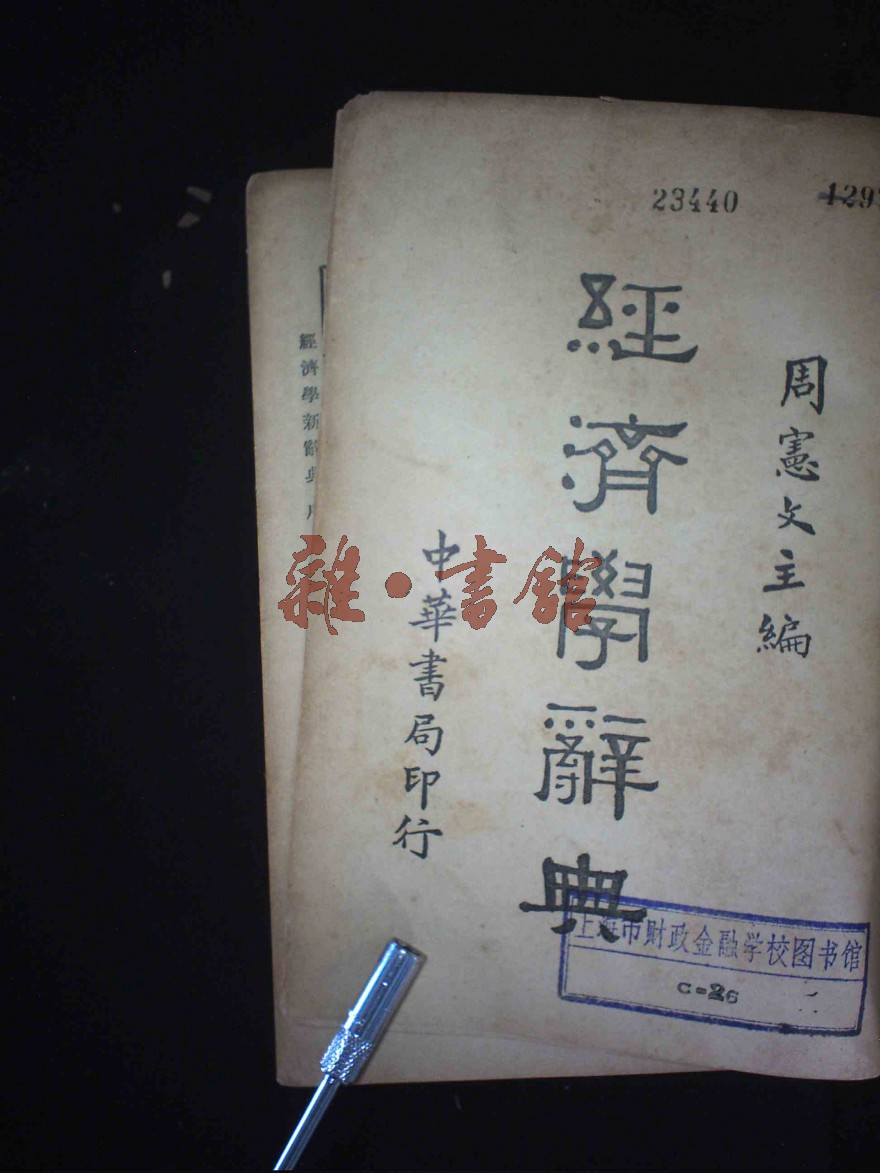 23440
周憲文主編
經濟學辭典
中華書局印行
上海市财政金融学校图书馆
C-26
雜·書館
經濟學新辭典